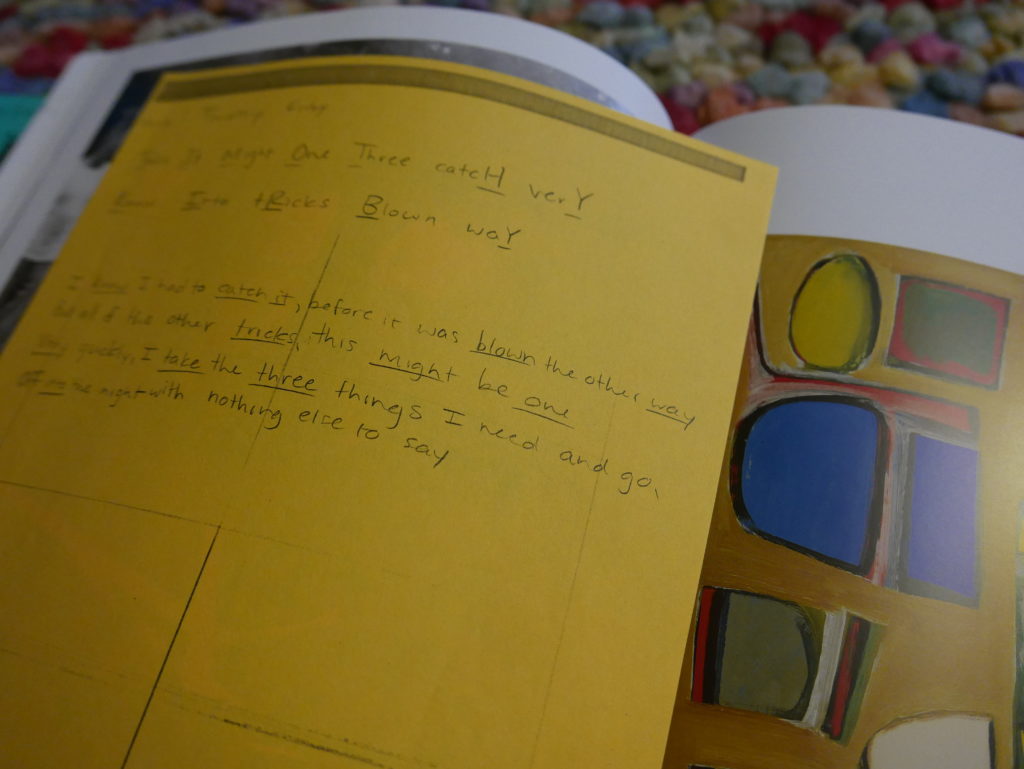 Timothy Kirby
Take It Might One Three catcH verY
Know Into tRicks Blown waY
I know I had to catch it, before it was blown the other way
But all of the other tricks, this might be one
Very quickly, I take the three things I need and go,
Off into the night with nothing else to say